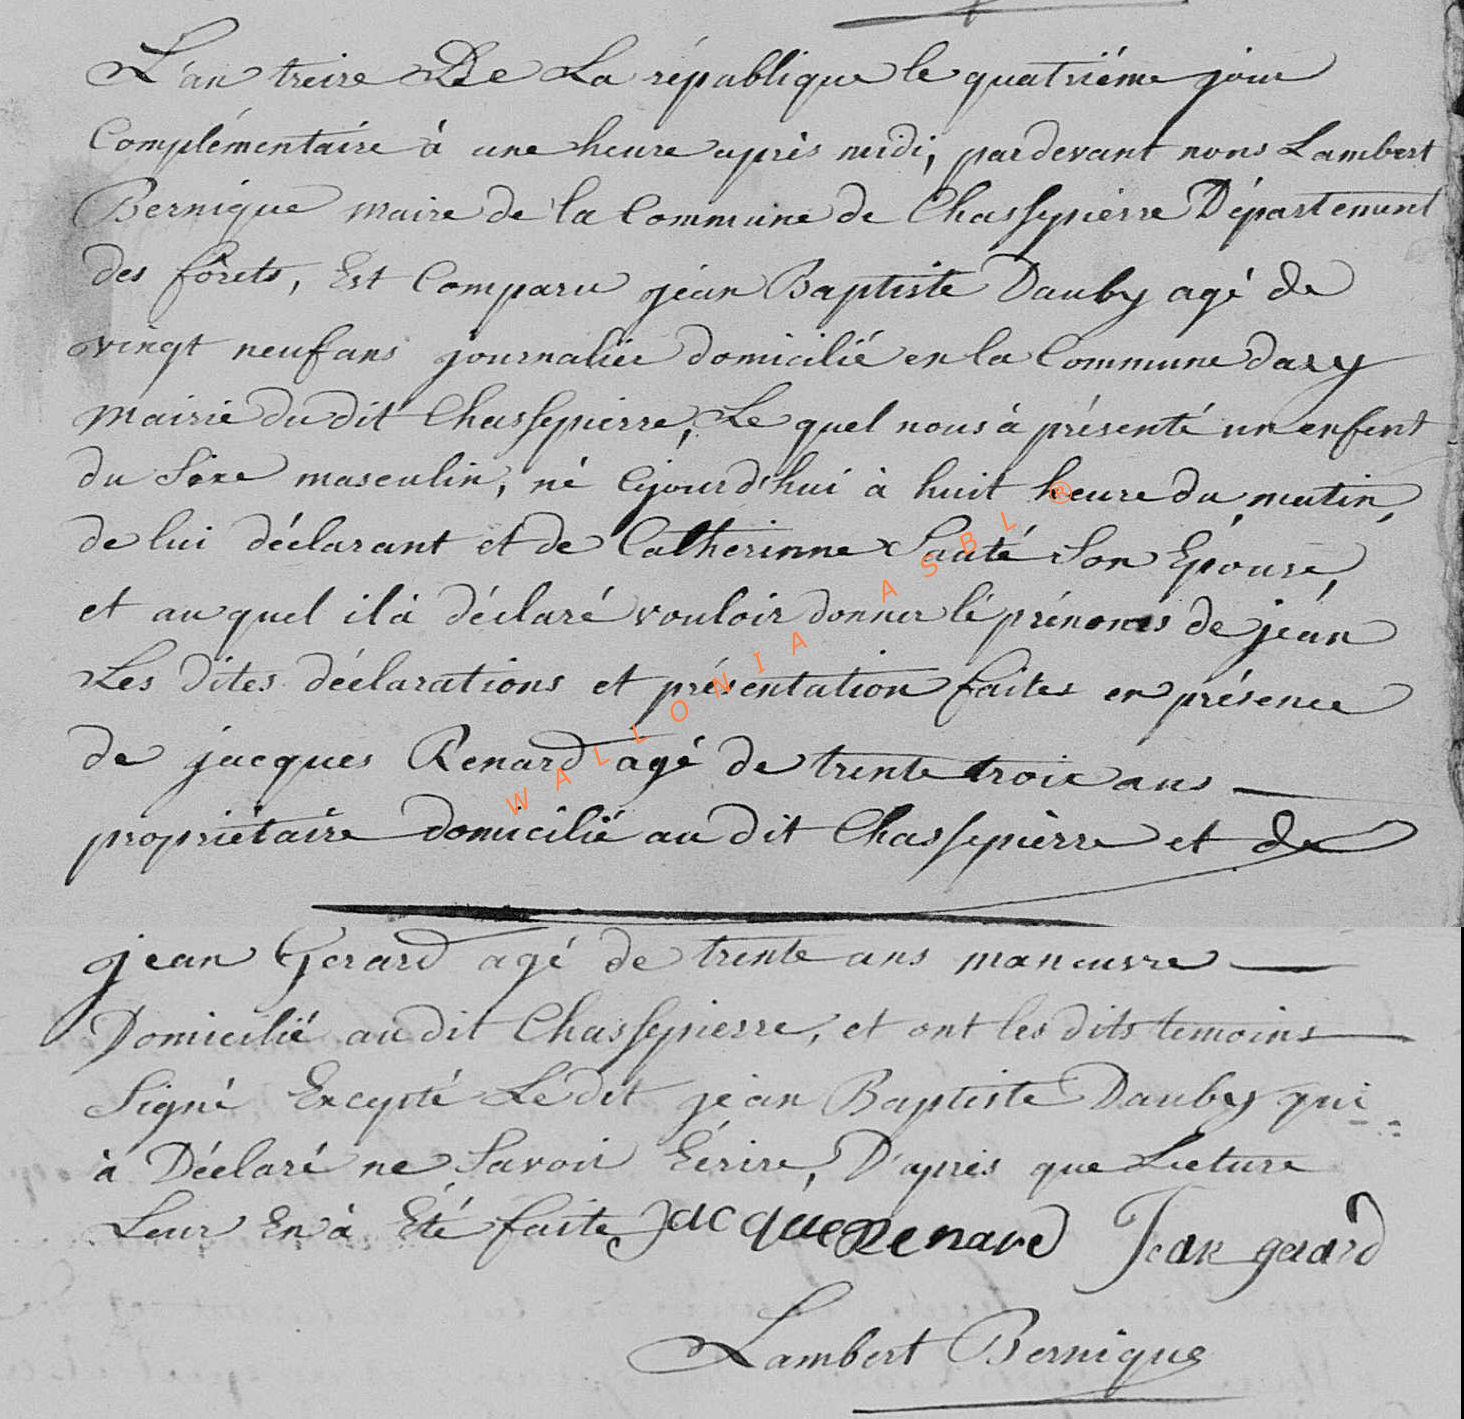 L'an treire De La république le quatriéme jour
Complémentaire à une heure après midi, pardevant nous Lambert
Bernique maire de la Commune de Chassepierre Département
des fôrets, Est Comparu jean Baptiste Dauby agé de
vingt neuf ans journalier domicilié en la Commune dazy
Mairie du dit Chassepierre, Le quel nous à présenté un enfent
du Séxe masculin, né Cejourd'hui à huit heure du matin,
de lui déclarant et de Catherinne Sauté Son Epouse,
et au quel il à déclaré vouloir donner lé prénoms de jean
Les dites déclarations et présentation faites en présence
de jacques Renard agé de trente trois ans
propriétaire domicilié au dit Chassepierre et de
jean Gerard agé de trente ans maneuvre
Domicilié au dit Chassepierre, et ont les dits temoins
Signé Excepté Le dit jean Baptiste Dauby qui
à Déclaré ne Savoir Écrire, D'après que Lecture
Leur En à Été faite Jacque Renard Jean gerard
Lambert Bernique
WALLONIA ASBL ®